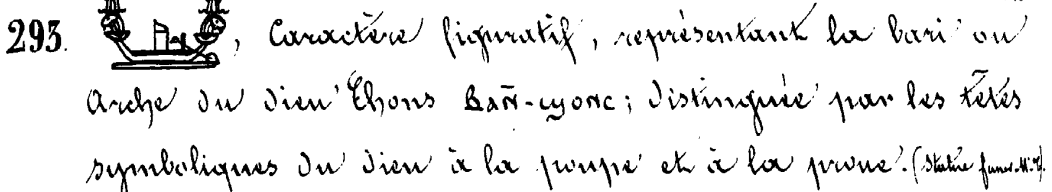 293. , Caractère figuratif, représentant la bari ou
Arche du dieu Chons ⲃⲁⲣⲓ-ϣⲟⲛⲥ; distinguée par les têtes
symboliques du dieu à la poupe et à la proue. (Statue funér. M. R.)